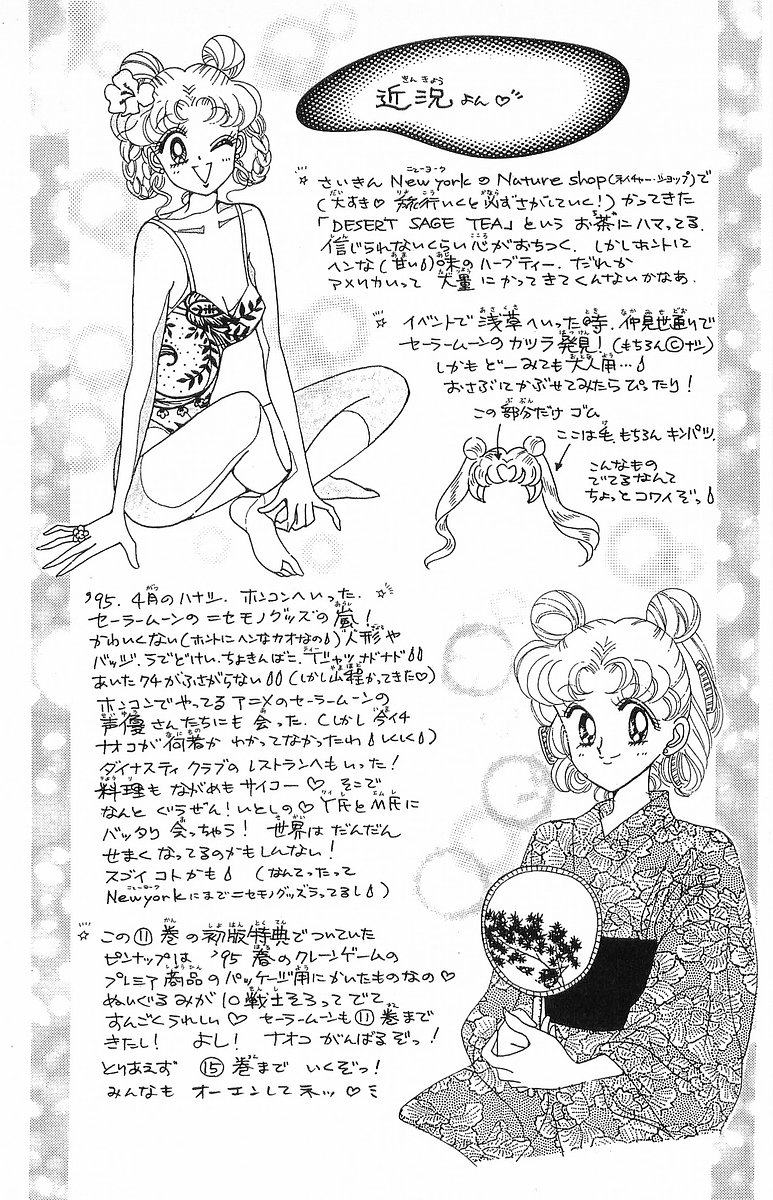 近況 よん♡
☆ さいきん New york の Nature shop (ネイチャー・ショップ)で
(大すき♡ 旅行いくと必ずさがしていく!) かってきた
「DESERT SAGE TEA」という お茶にハマってる.
信じられないくらい 心がおちつく. しかしホントに
ヘンな(甘い)味のハーブティー. だれか
アメリカいって 大量 にかってきてくんないかなあ.
☆ イベントで 浅草へいった時. 仲見世通りで
セーラームーンの カツラ 発見! (もちろん©ナシ)
しかも どーみても 大人用…
おさぶにかぶせてみたら ぴったり!
この部分だけ ゴム
ここは毛. もちろん キンパツ.
こんなもの
でてるなんて
ちょっと コワイぞっ
'95. 4月のハナシ. ホンコンへいった. ☆
セーラームーンの ニセモノグッズの 嵐!
かわいくない(ホントにヘンなカオなの) 人形や
バッジ. うでどけい. ちょきんばこ. Tシャツ ナドナド
あいたクチがふさがらない (しかし山程かってきた♡)
ホンコンでやってる アニメのセーラームーンの
声優さんたちにも 会った. (しかし 今イチ
ナオコが何者か わかってなかったわ しくしく)
ダイナスティ クラブの レストランへもいった!
料理も ながめもサイコー ♡ そこで
なんと ぐうぜん! いとしの♡ Y氏とM氏に
バッタり 会っちゃう! 世界は だんだん
せまく なってるのかもしんない!
スゴイ コトかも (なんてったって
New york にまでニセモノグッズうってるし)
☆ この⑪巻の初版特典でついていた
ピンナップは '95 春のクレーンゲームの
プレミア商品のパッケージ用にかいたものなの♡
ぬいぐるみが 10戦士そろって でて
すんごくうれしい♡ セーラームーンも⑪巻まで
きたし! よし! ナオコ がんばるぞっ!
とりあえず ⑮巻まで いくぞっ!
みんなも オーエンしてネッ ♡